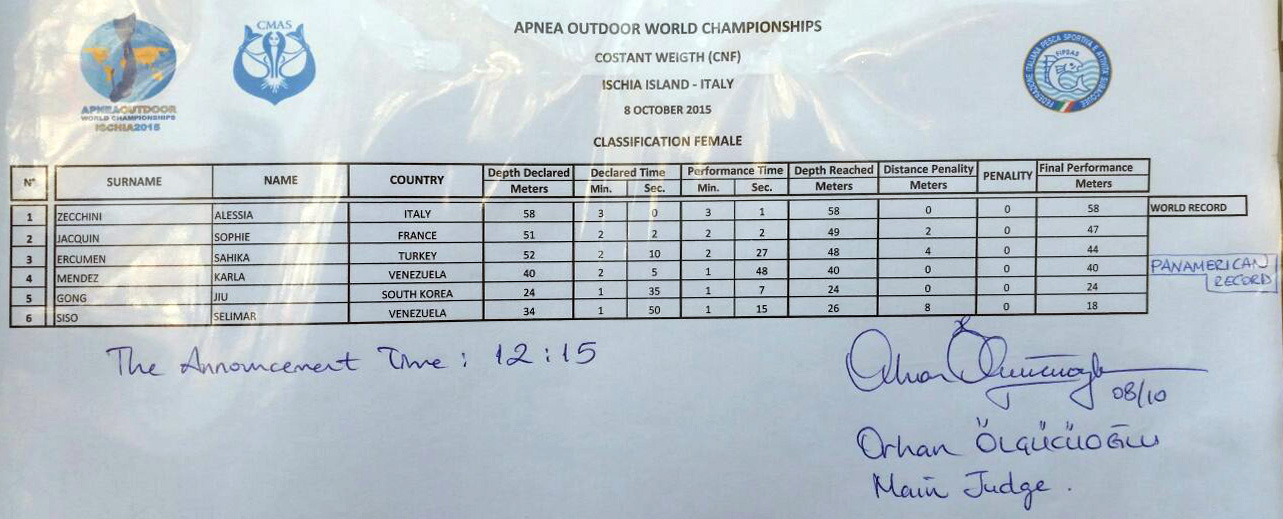 CMAS
APNEA OUTDOOR WORLD CHAMPIONSHIPS
COSTANT WEIGTH (CNF)
ISCHIA ISLAND - ITALY
8 OCTOBER 2015
CLASSIFICATION FEMALE
APNEAOUTDOOR
WORLD CHAMPIONSHIPS
ISCHIA2015
FEDERAZIONE ITALIANA PESCA SPORTIVA E ATTIVITÀ SUBACQUEE
FIPSAS
N° SURNAME NAME COUNTRY Depth Declared Declared Time Performance Time Depth Reached Distance Penality PENALITY Final Performance
Meters Min. Sec. Min. Sec. Meters Meters Meters
1 ZECCHINI ALESSIA ITALY 58 3 0 3 1 58 0 0 58 WORLD RECORD
2 JACQUIN SOPHIE FRANCE 51 2 2 2 2 49 2 0 47
3 ERCUMEN SAHIKA TURKEY 52 2 10 2 27 48 4 0 44
4 MENDEZ KARLA VENEZUELA 40 2 5 1 48 40 0 0 40 PANAMERICAN RECORD
5 GONG JIU SOUTH KOREA 24 1 35 1 7 24 0 0 24
6 SISO SELIMAR VENEZUELA 34 1 50 1 15 26 8 0 18
The Announcement Time : 12:15
08/10
Orhan ÖLGÜCÜOĞLU
Main Judge.